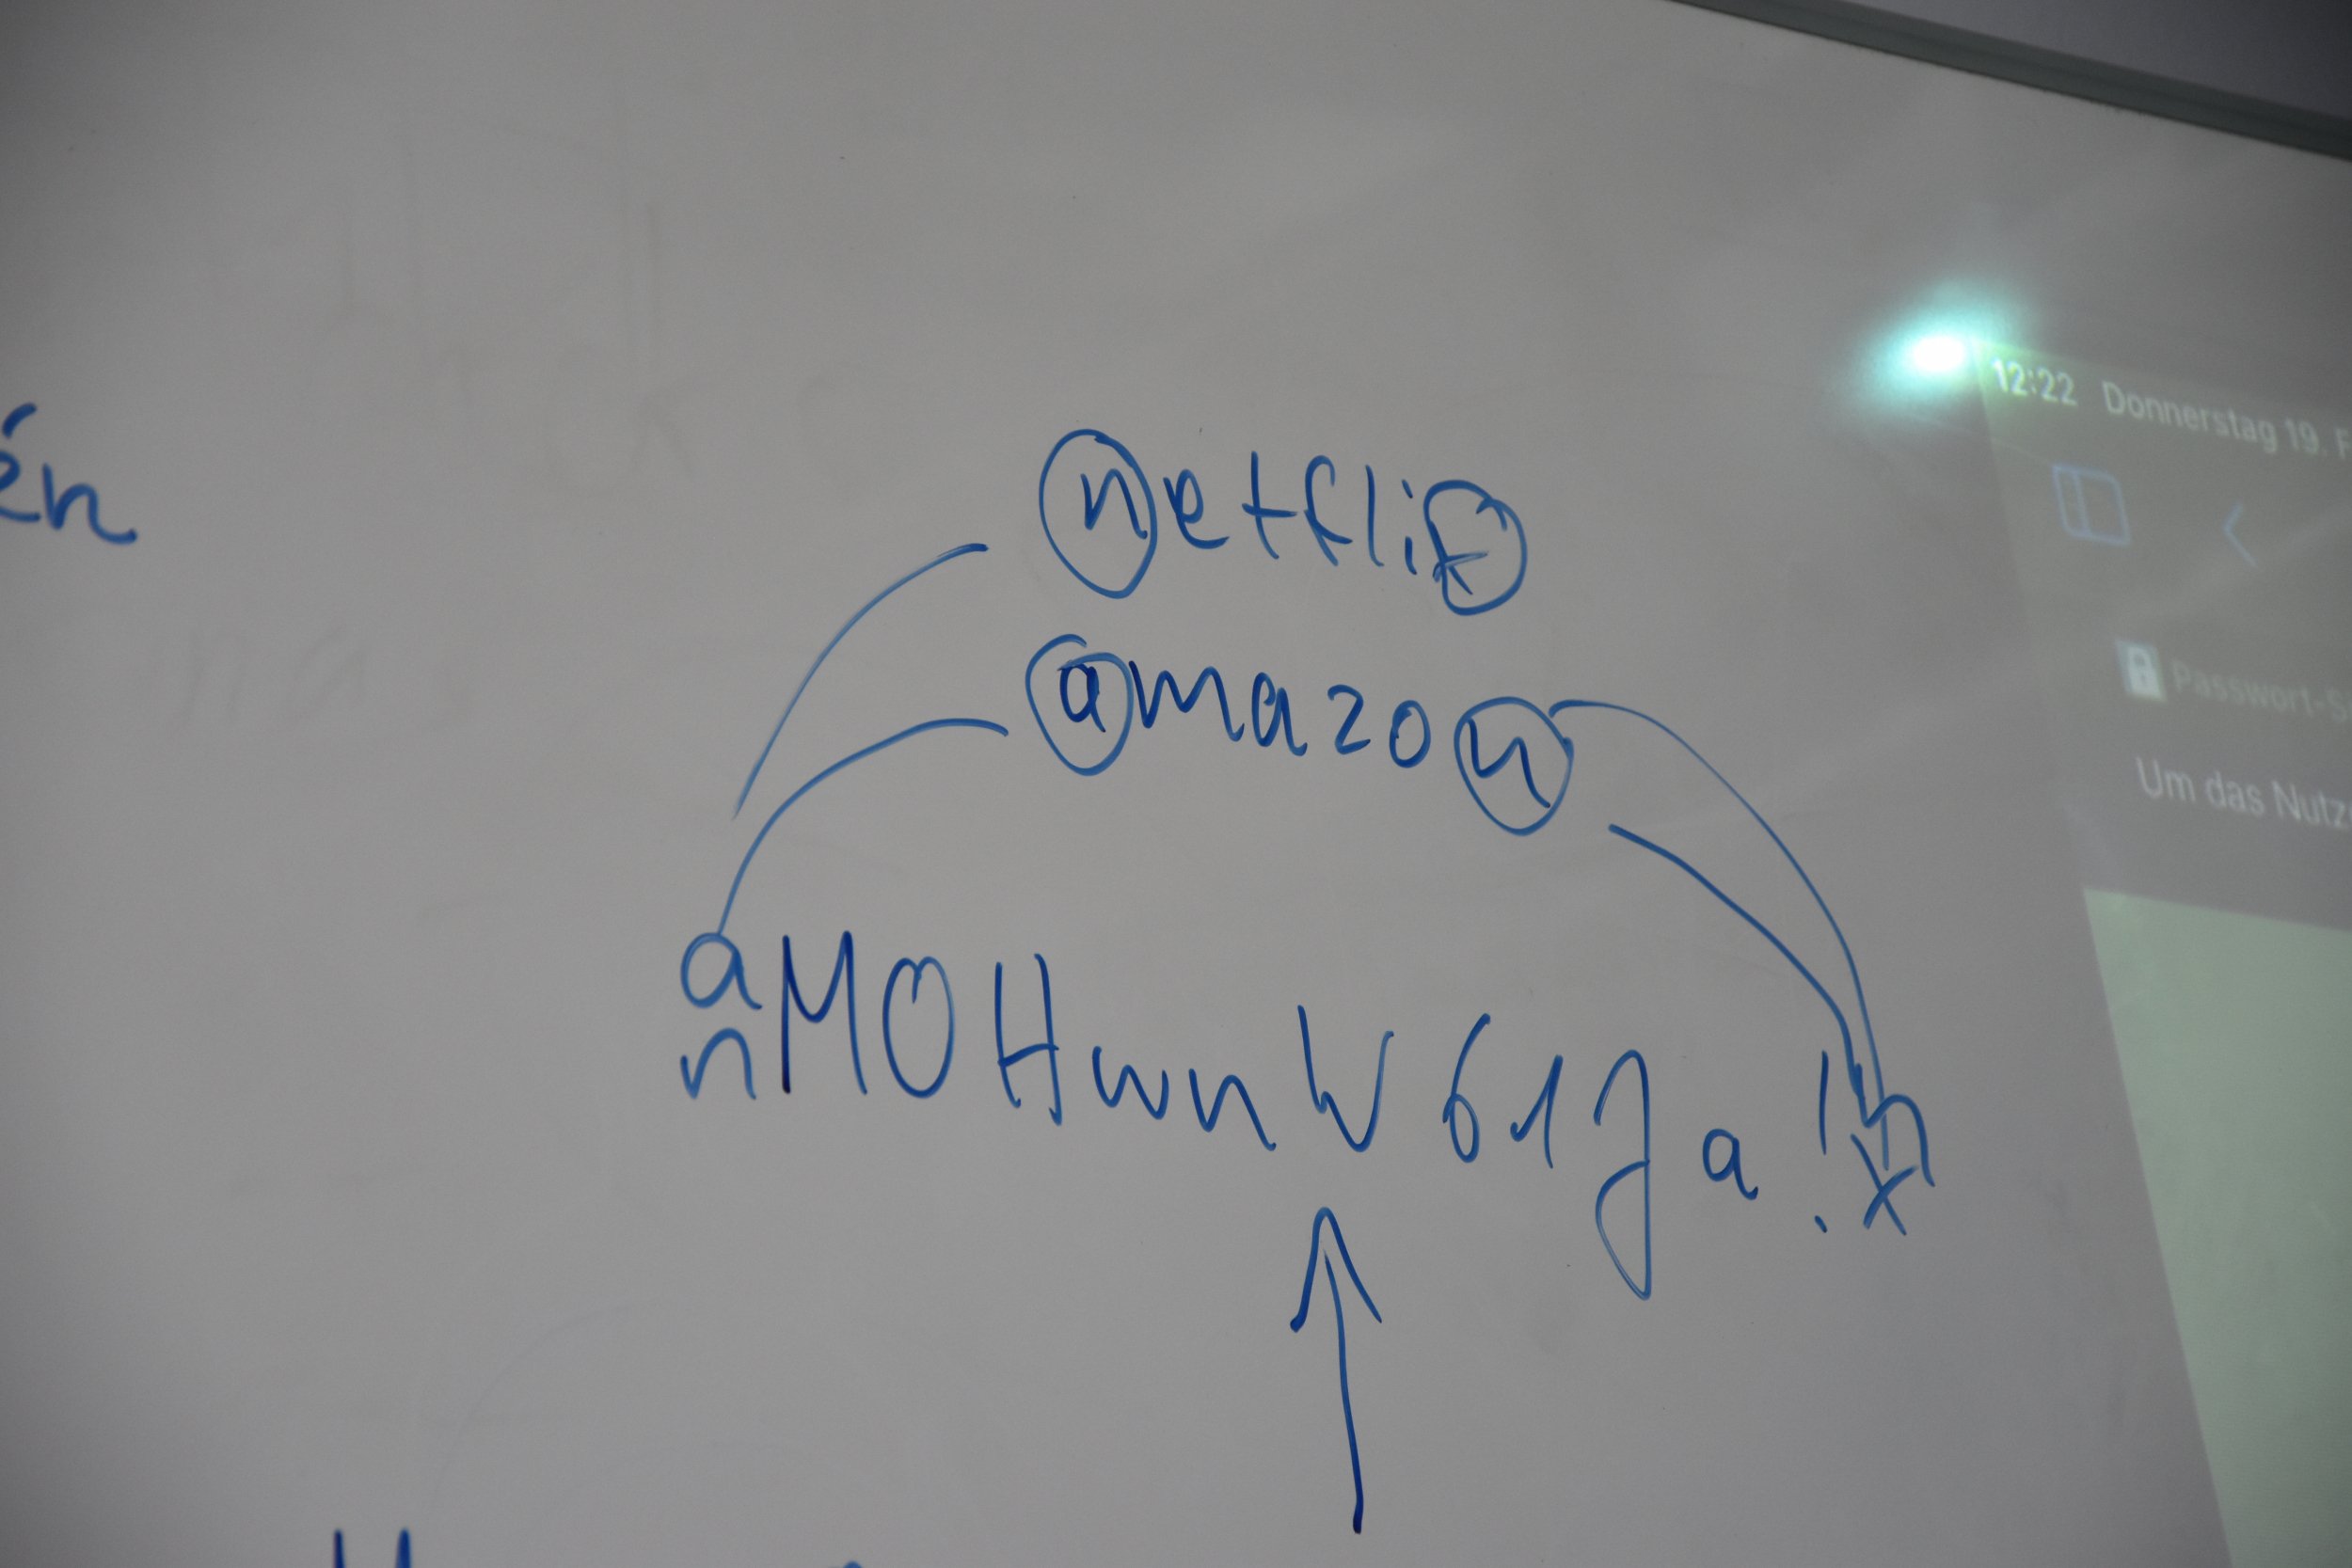 én
netflix
amazon
a
n MOHwnW61Ja! n
x
12:22 Donnerstag 19. F
Passwort-S
Um das Nutz